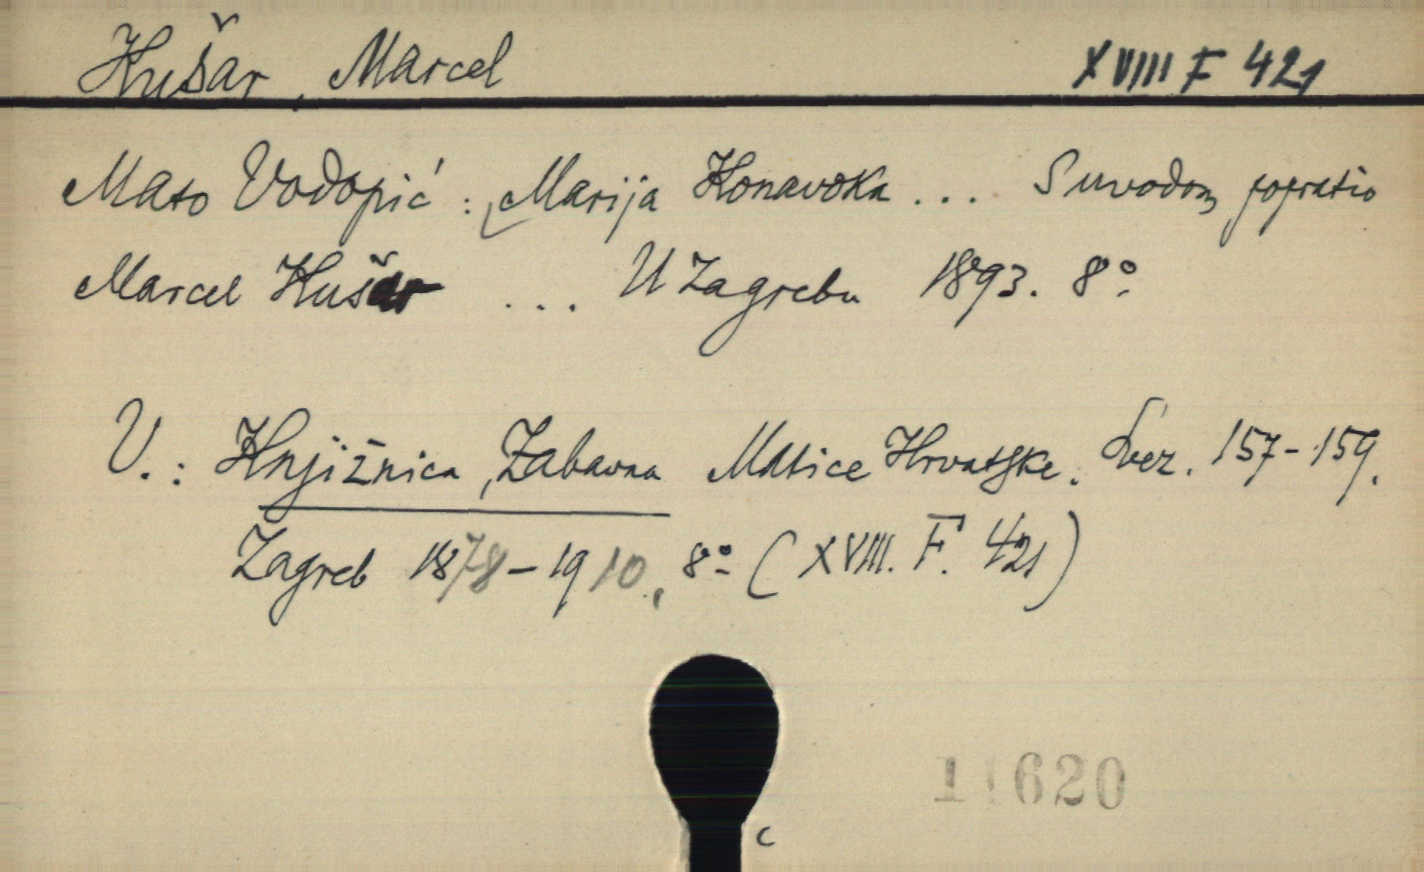 Kušar, Marcel XVIII F 421
Mato Vodopić: Marija Konavoka ... S uvodom popratio
Marcel Kušar ... U Zagrebu 1893. 8°.
V.: Knjižnica, Zabavna Matice Hrvatske. Svez. 157-159.
Zagreb 1878-1910, 8° (XVIII. F. 421)
11620
c